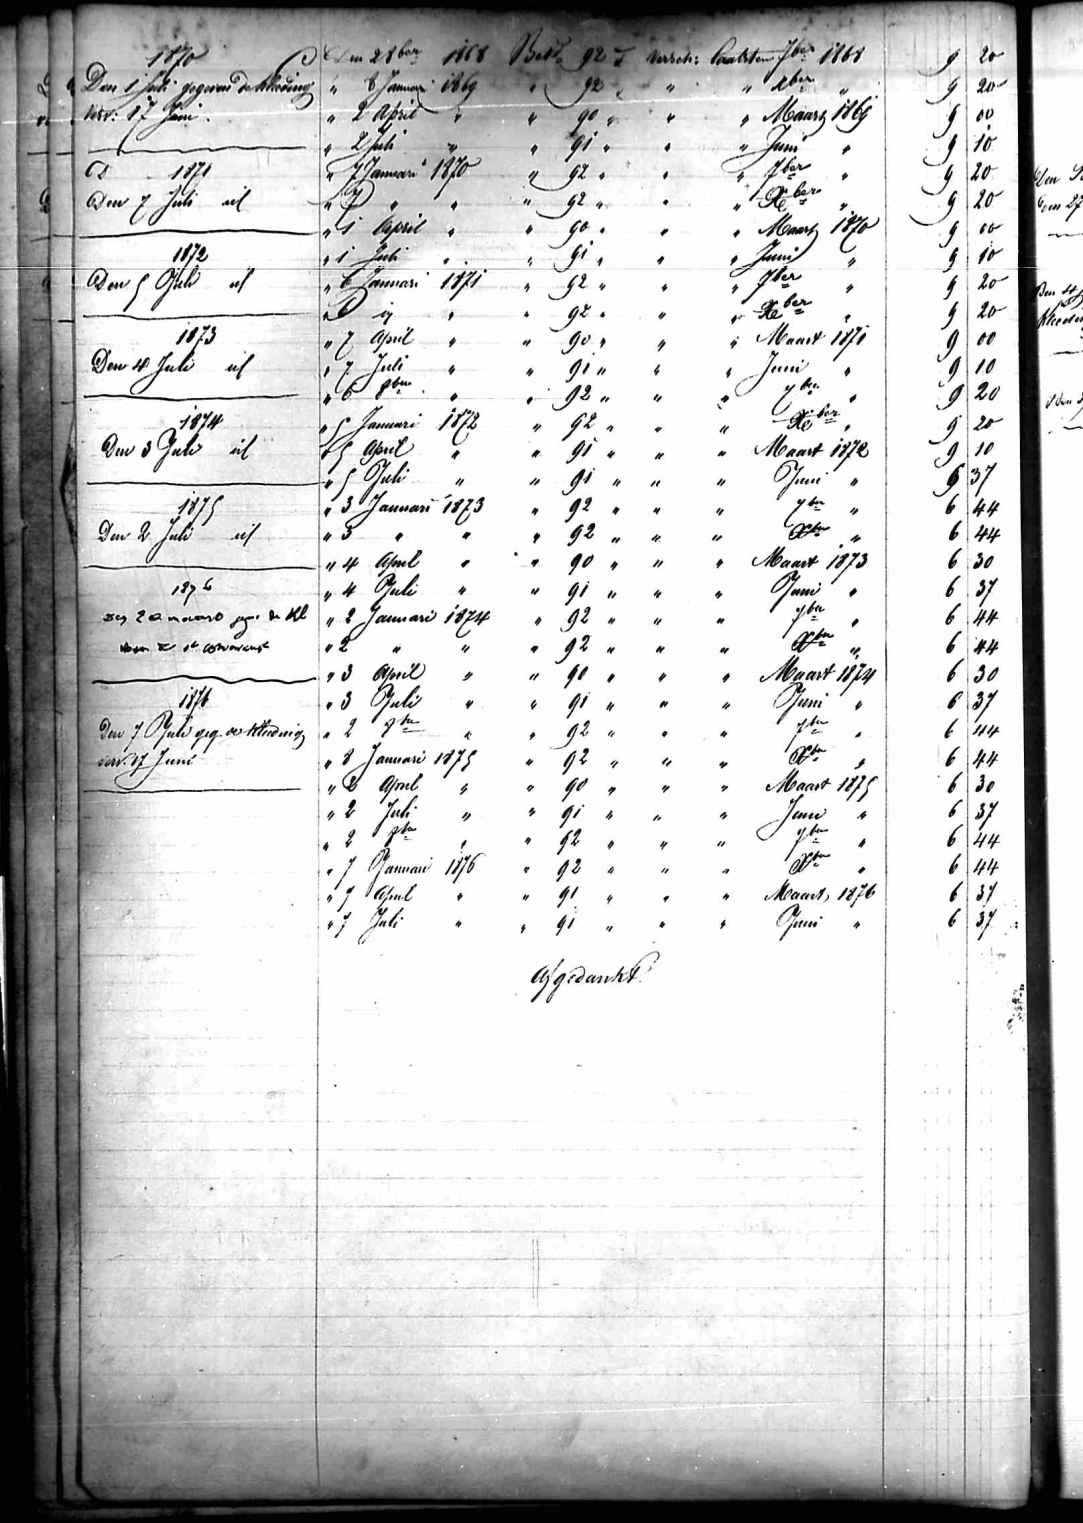 1870
Den 1 Juli gegeven de kleeding
versc: 17 Juni.
1871
Den 7 Juli id
1872
Den 5 Juli id
1873
Den 4 Juli id
1874
Den 3 Juli id
1875
Den 2 Juli id
1876
1876
Den 7 Juli geg. de kleeding
ver. 17 Juni
Den 2 8ber 1868 Bet: 92 d versch: laatsten 7ber 1868 9 20
" 8 Januari 1869 " 92 " " " Xber " 9 20
" 2 April " " 90 " " " Maart 1869 9 00
" 2 Juli " " 91 " " " Juni " 9 10
" 7 Januari 1870 " 92 " " " 7ber " 9 20
" 7 " " " 92 " " " Xber " 9 20
" 1 April " " 90 " " " Maart 1870 9 00
" 1 Juli " " 91 " " " Juni " 9 10
" 6 Januari 1871 " 92 " " " 7ber " 9 20
" " 92 " " " Xber " 9 20
" 7 April " " 90 " " " Maart 1871 9 00
" 7 Juli " " 91 " " " Juni " 9 10
" 6 8ber " " 92 " " " 7ber " 9 20
" 5 Januari 1872 " 92 " " " Xber " 9 20
" 5 April " " 91 " " " Maart 1872 9 10
" 5 Juli " " 91 " " " Juni " 6 37
" 3 Januari 1873 " 92 " " " 7ber " 6 44
" 3 " " " 92 " " " Xber " 6 44
" 4 April " " 90 " " " Maart 1873 6 30
" 4 Juli " " 91 " " " Juni " 6 37
" 2 Januari 1874 " 92 " " " 7ber " 6 44
" 2 " " " 92 " " " Xber " 6 44
" 3 April " " 90 " " " Maart 1874 6 30
" 3 Juli " " 91 " " " Juni " 6 37
" 2 8ber " " 92 " " " 7ber " 6 44
" 8 Januari 1875 " 92 " " " Xber " 6 44
" 2 April " " 90 " " " Maart 1875 6 30
" 2 Juli " " 91 " " " Juni " 6 37
" 2 8ber " " 92 " " " 7ber " 6 44
" 7 Januari 1876 " 92 " " " Xber " 6 44
" 7 April " " 91 " " " Maart 1876 6 37
" 7 Juli " " 91 " " " Juni " 6 37
Afgedankt.